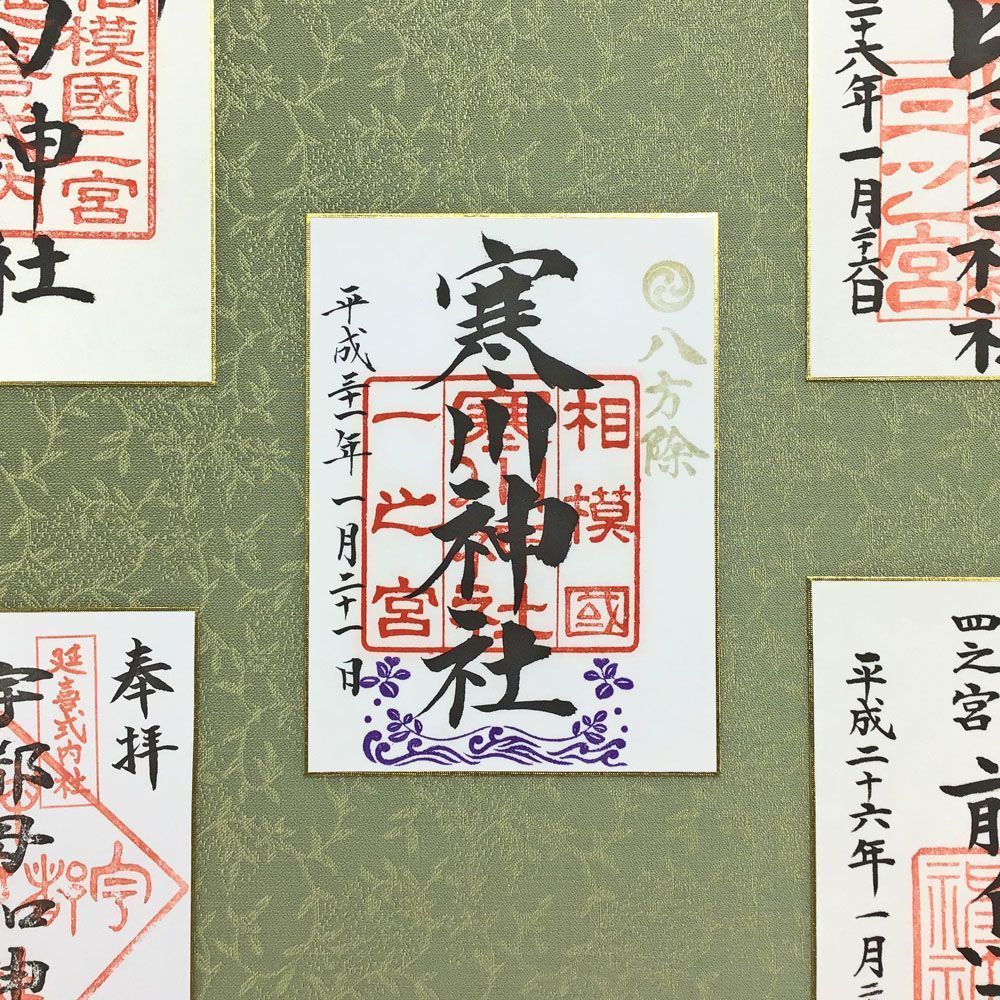 八方除
寒川神社
相模國
寒川神社
一之宮
平成三十一年一月二十一日
相模國二宮
神社
二十六年一月二十六日
之宮
奉拝
延喜式内社
宇都母知神
宇都
四之宮
前
平成二十六年一月二